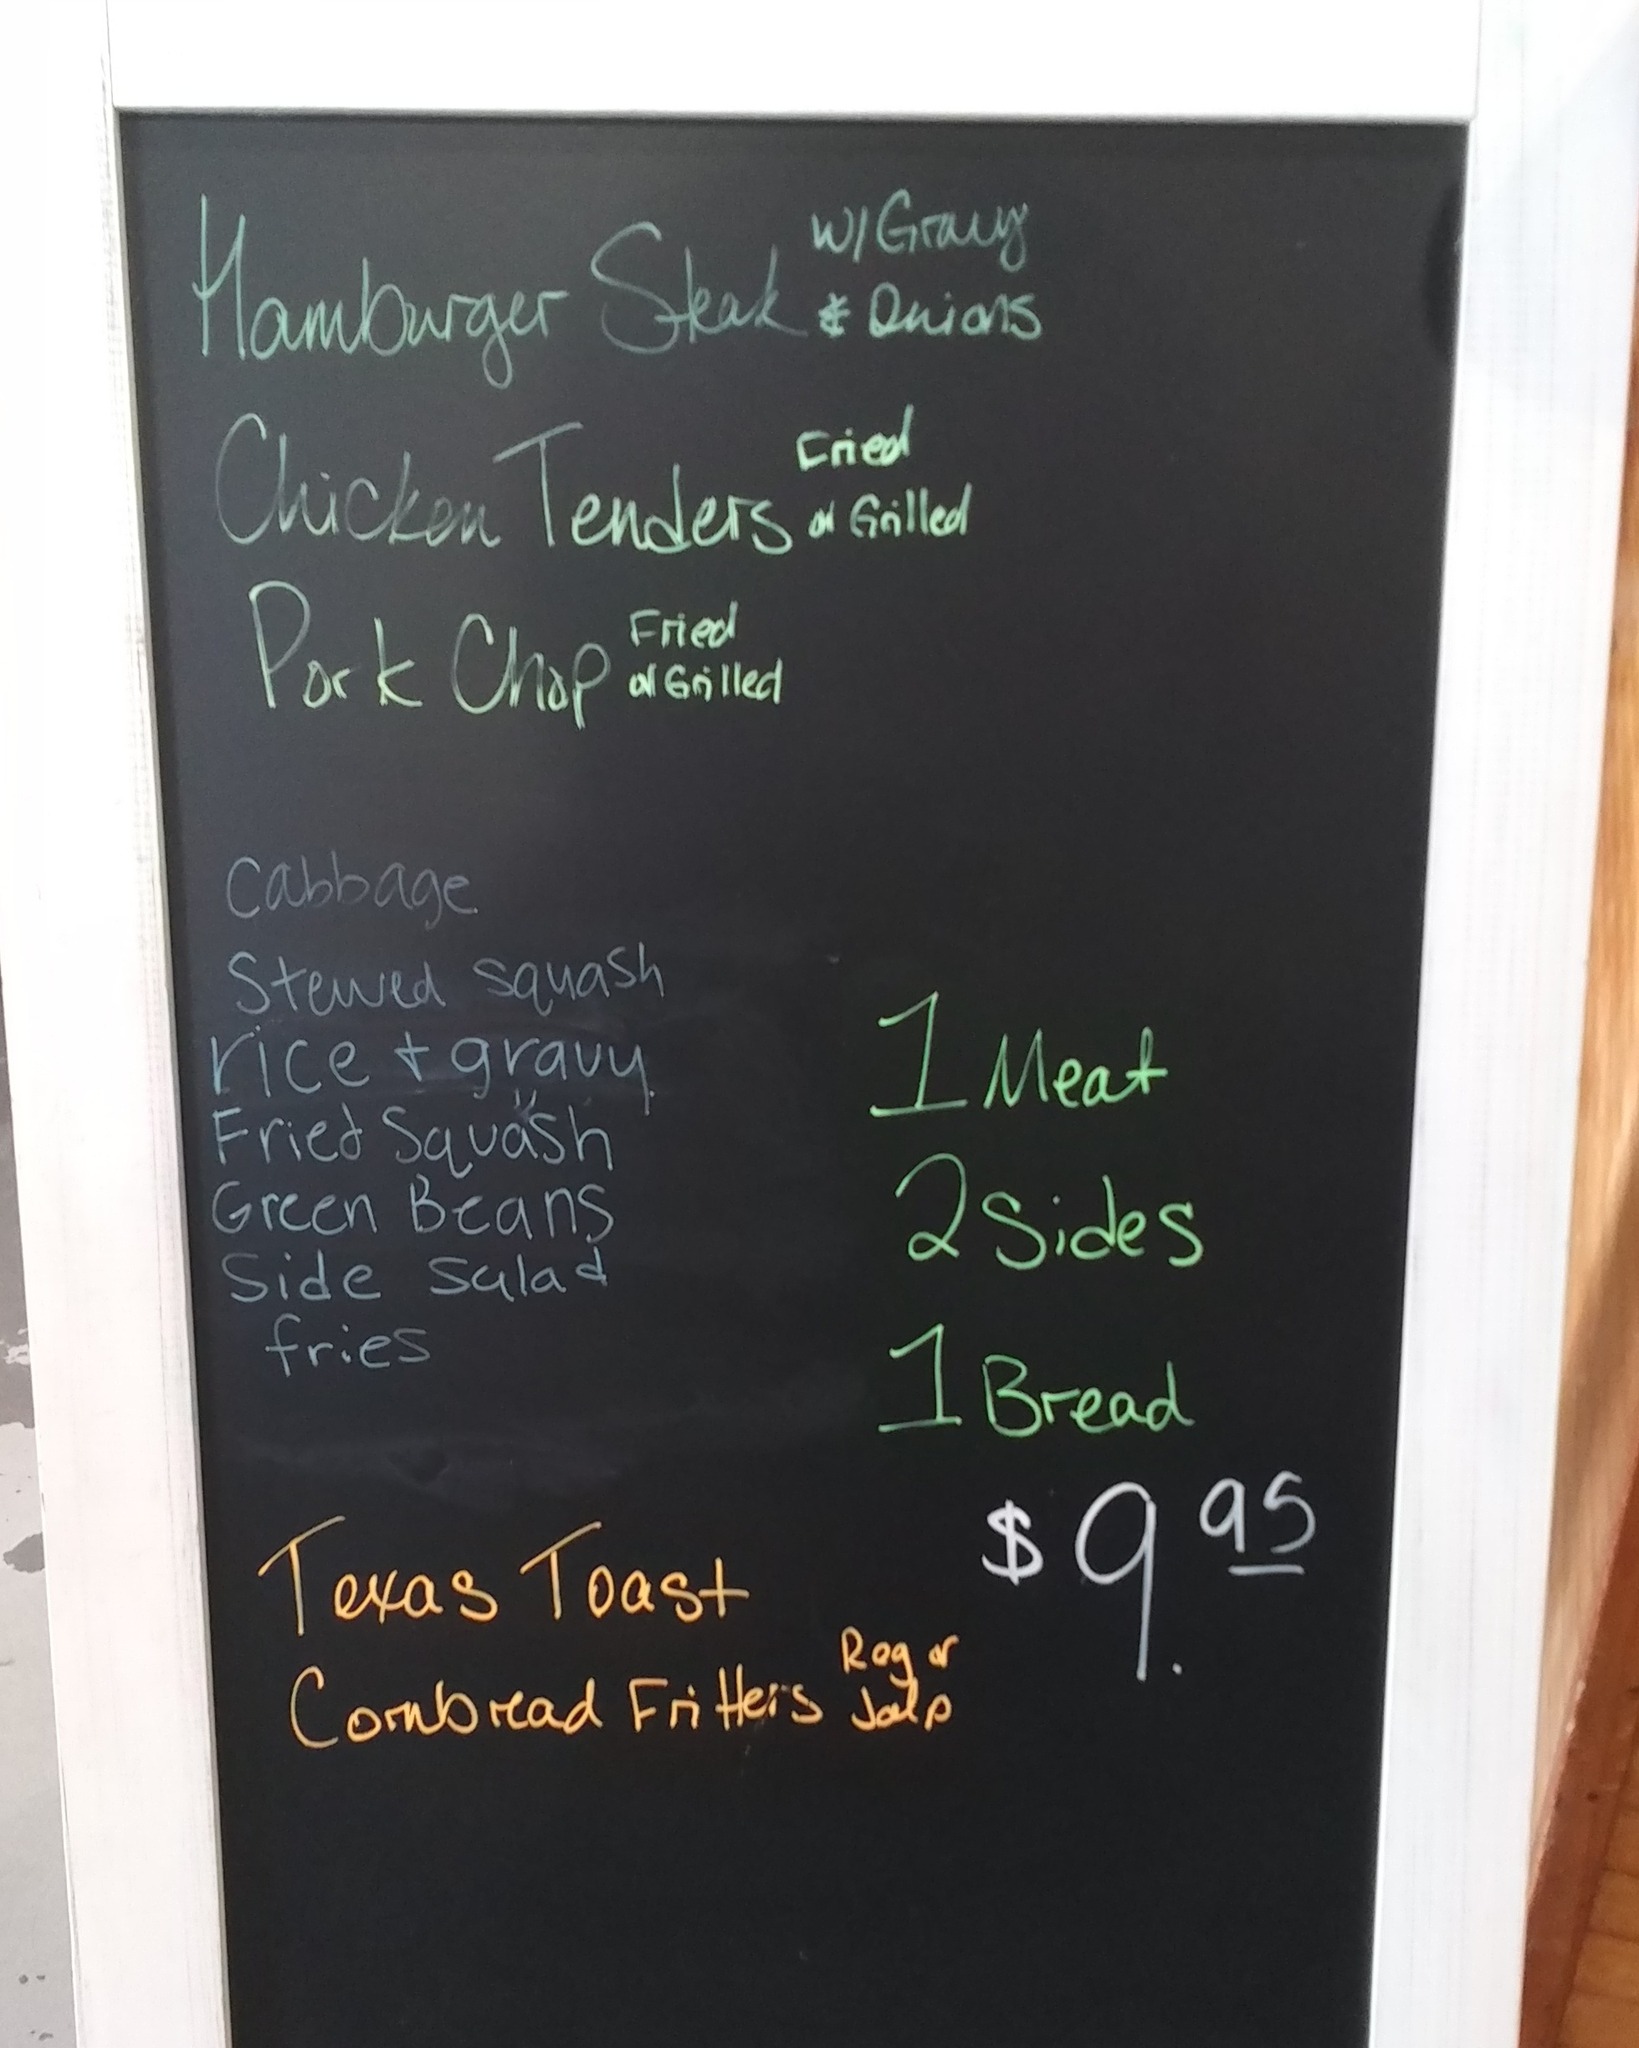 Hamburger Steak w/ Gravy
& Onions
Chicken Tenders Fried
or Grilled
Pork Chop Fried
or Grilled
Cabbage
Stewed squash
rice + gravy
Fried Squash
Green Beans
Side Salad
fries
1 Meat
2 Sides
1 Bread
$9.95
Texas Toast
Cornbread Fritters Reg or
Jalp